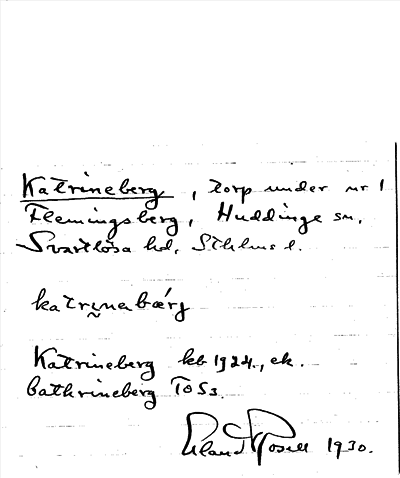 Katrineberg, torp under nr 1
Flemingsberg, Huddinge sn,
Svartlösa hd, Sthlms l.
katrinabærg
Katrineberg kb 1924., ek.
Cathrineberg To S3
Erland Rosell 1930.